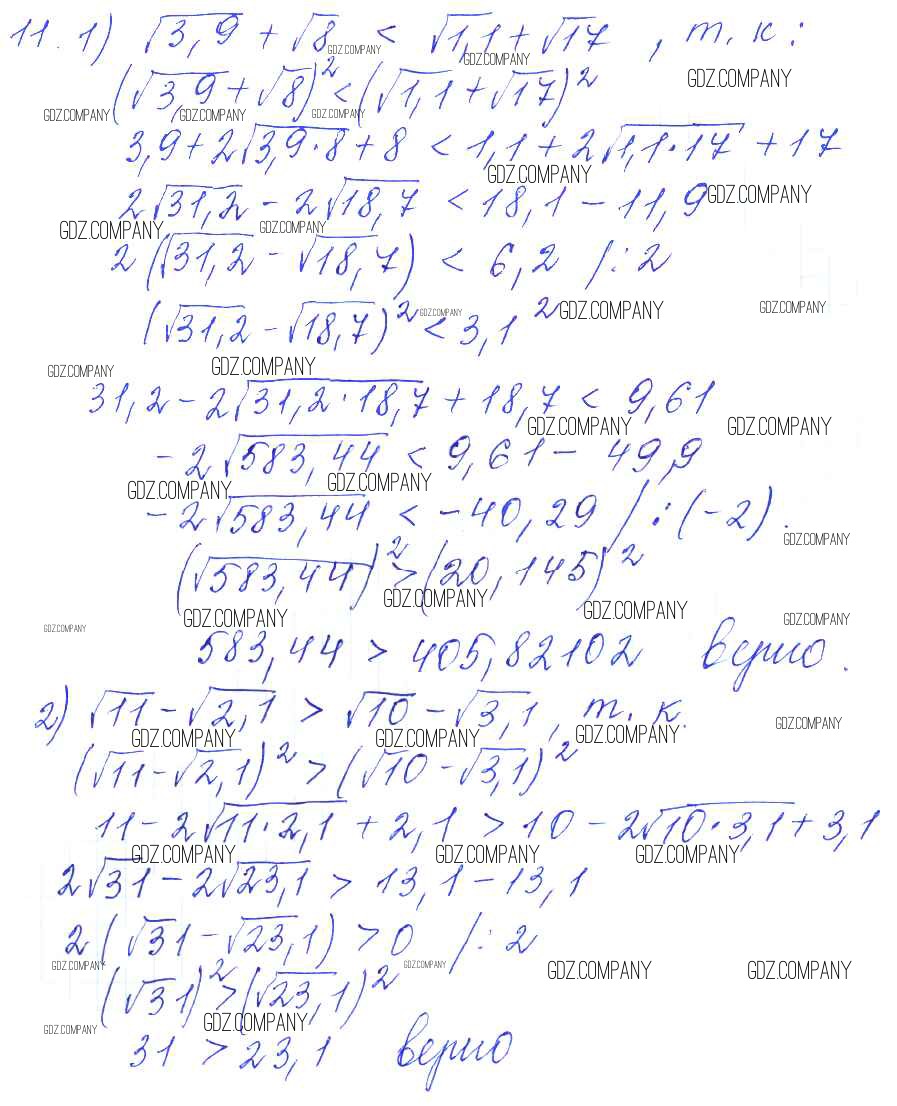 11. 1) √3,9 + √8 < √1,1 + √17, т. к:
(√3,9 + √8)² < (√1,1 + √17)²
3,9 + 2√3,9·8 + 8 < 1,1 + 2√1,1·17 + 17
2√31,2 - 2√18,7 < 18,1 - 11,9
2(√31,2 - √18,7) < 6,2 /: 2
(√31,2 - √18,7)² < 3,1²
31,2 - 2√31,2·18,7 + 18,7 < 9,61
-2√583,44 < 9,61 - 49,9
-2√583,44 < -40,29 /: (-2).
(√583,44)² > (20,145)²
583,44 > 405,82102 верно.
2) √11 - √2,1 > √10 - √3,1, т. к.
(√11 - √2,1)² > (√10 - √3,1)²
11 - 2√11·2,1 + 2,1 > 10 - 2√10·3,1 + 3,1
2√31 - 2√23,1 > 13,1 - 13,1
2(√31 - √23,1) > 0 /: 2
(√31)² > (√23,1)²
31 > 23,1 верно
GDZ.COMPANY